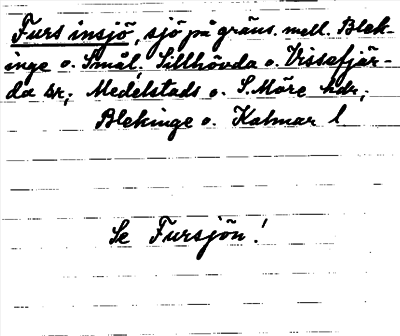 Furs insjö, sjö på gräns. mell. Blek-
inge o. Smål. Sillhövda o. Vissefjär-
da sn; Medelstads o. S. Möre hdr;
Blekinge o. Kalmar l
Se Fursjön!